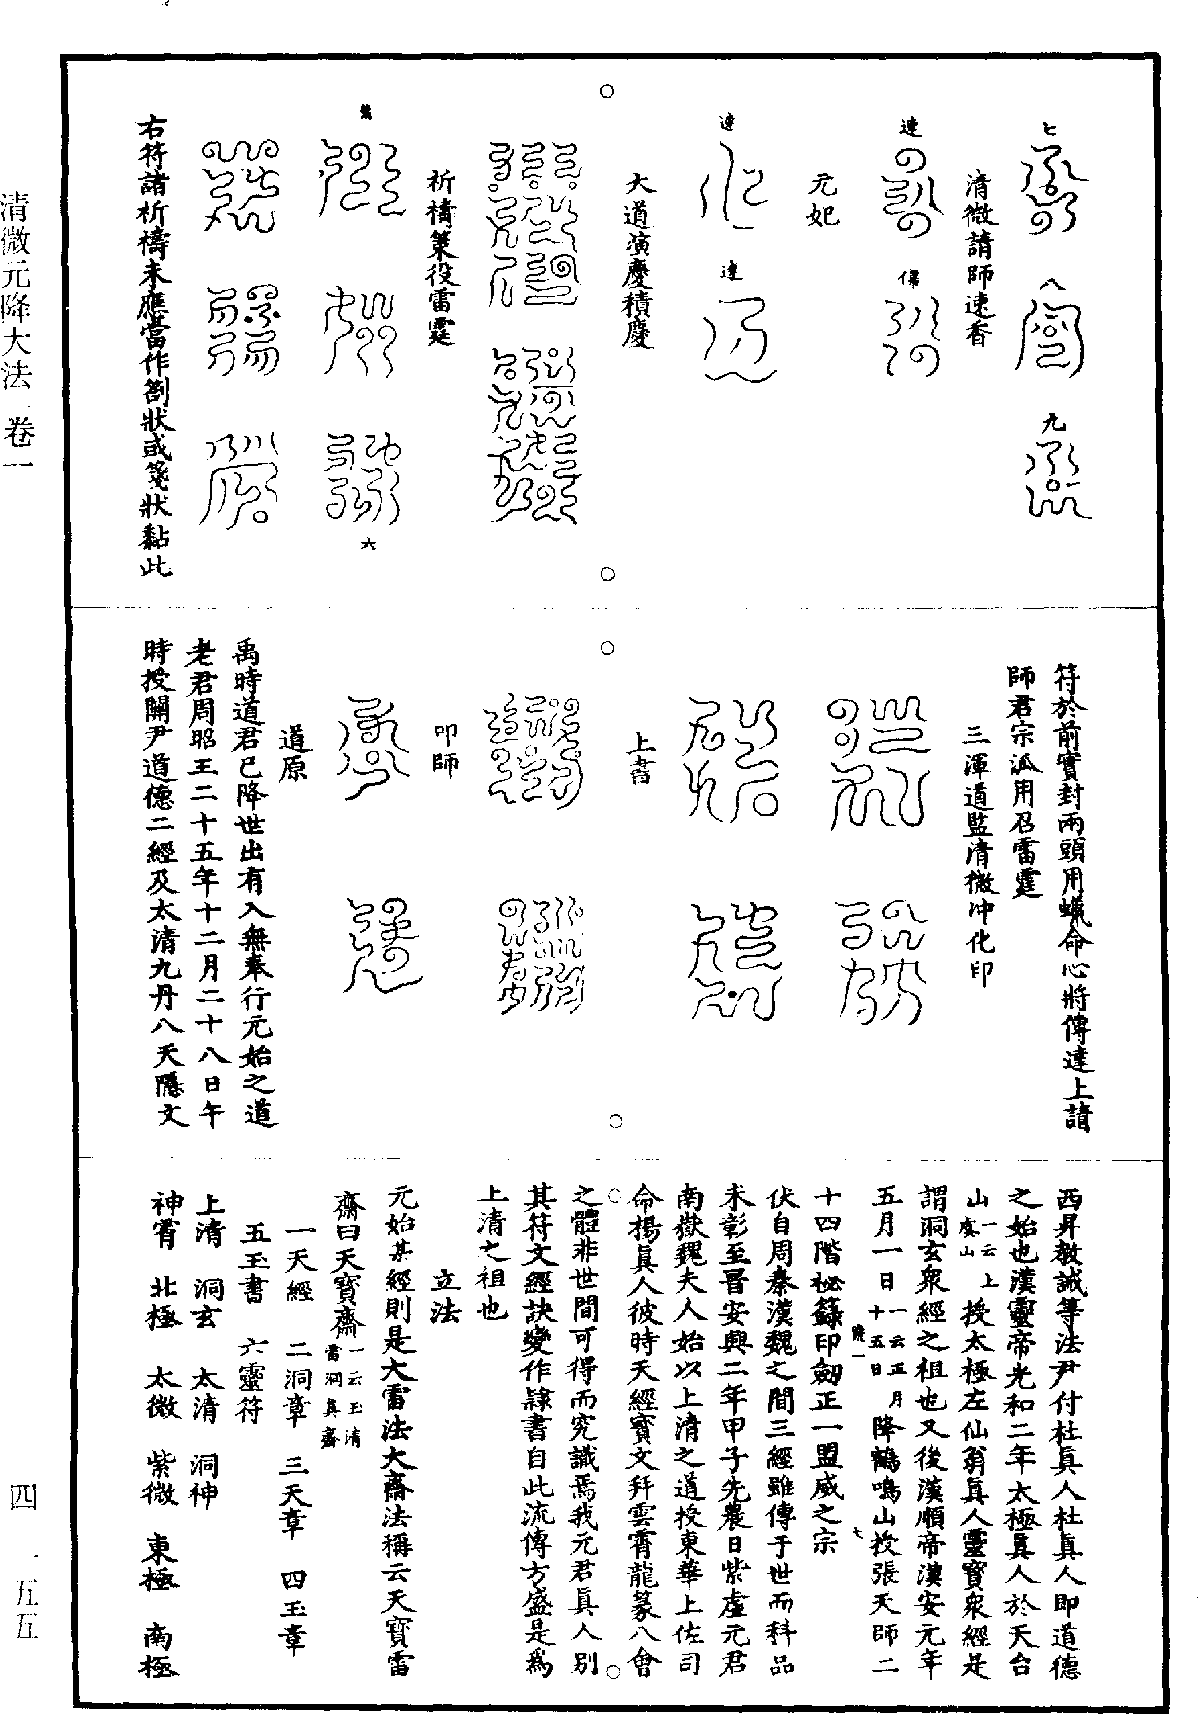 七
八
九
清微請師速香
達
元妃
達
達
大道演慶積慶
祈禱策役雷霆
六
右符諸祈禱未應當作劄狀或箋狀黏此
符於前實封兩頭用蠟命心將傳達上請
師君宗派用召雷霆
三渾道監清微沖化印
上書
叩師
道原
禹時道君已降世出有入無奉行元始之道
老君周昭王二十五年十二月二十八日午
時授關尹道德二經及太清九丹八天隱文
西昇教誡等法尹付杜真人杜真人即道德
之始也漢靈帝光和二年太極真人於天台
山一云上虞山授太極左仙翁真人靈寶眾經是
謂洞玄眾經之祖也又後漢順帝漢安元年
五月一日一云正月十五日降鶴鳴山授張天師二
十四階祕籙印劍正一盟威之宗
伏自周秦漢魏之間三經雖傳于世而科品
未彰至晉安興二年甲子先農日紫虛元君
南嶽魏夫人始以上清之道授東華上佐司
命楊真人彼時天經寶文玨雲霄龍篆八會
之體非世間可得而究識焉我元君真人別
其符文經訣變作隸書自此流傳方盛是為
上清之祖也
立法
元始某經則是大雷法大齋法稱云天寶雷
齋曰天寶齋一云玉清雷洞真齋
一天經 二洞章 三天章 四玉章
五玉書 六靈符
上清 洞玄 太清 洞神
神霄 北極 太微 紫微 東極 南極
清微元降大法 卷一
四 一五五